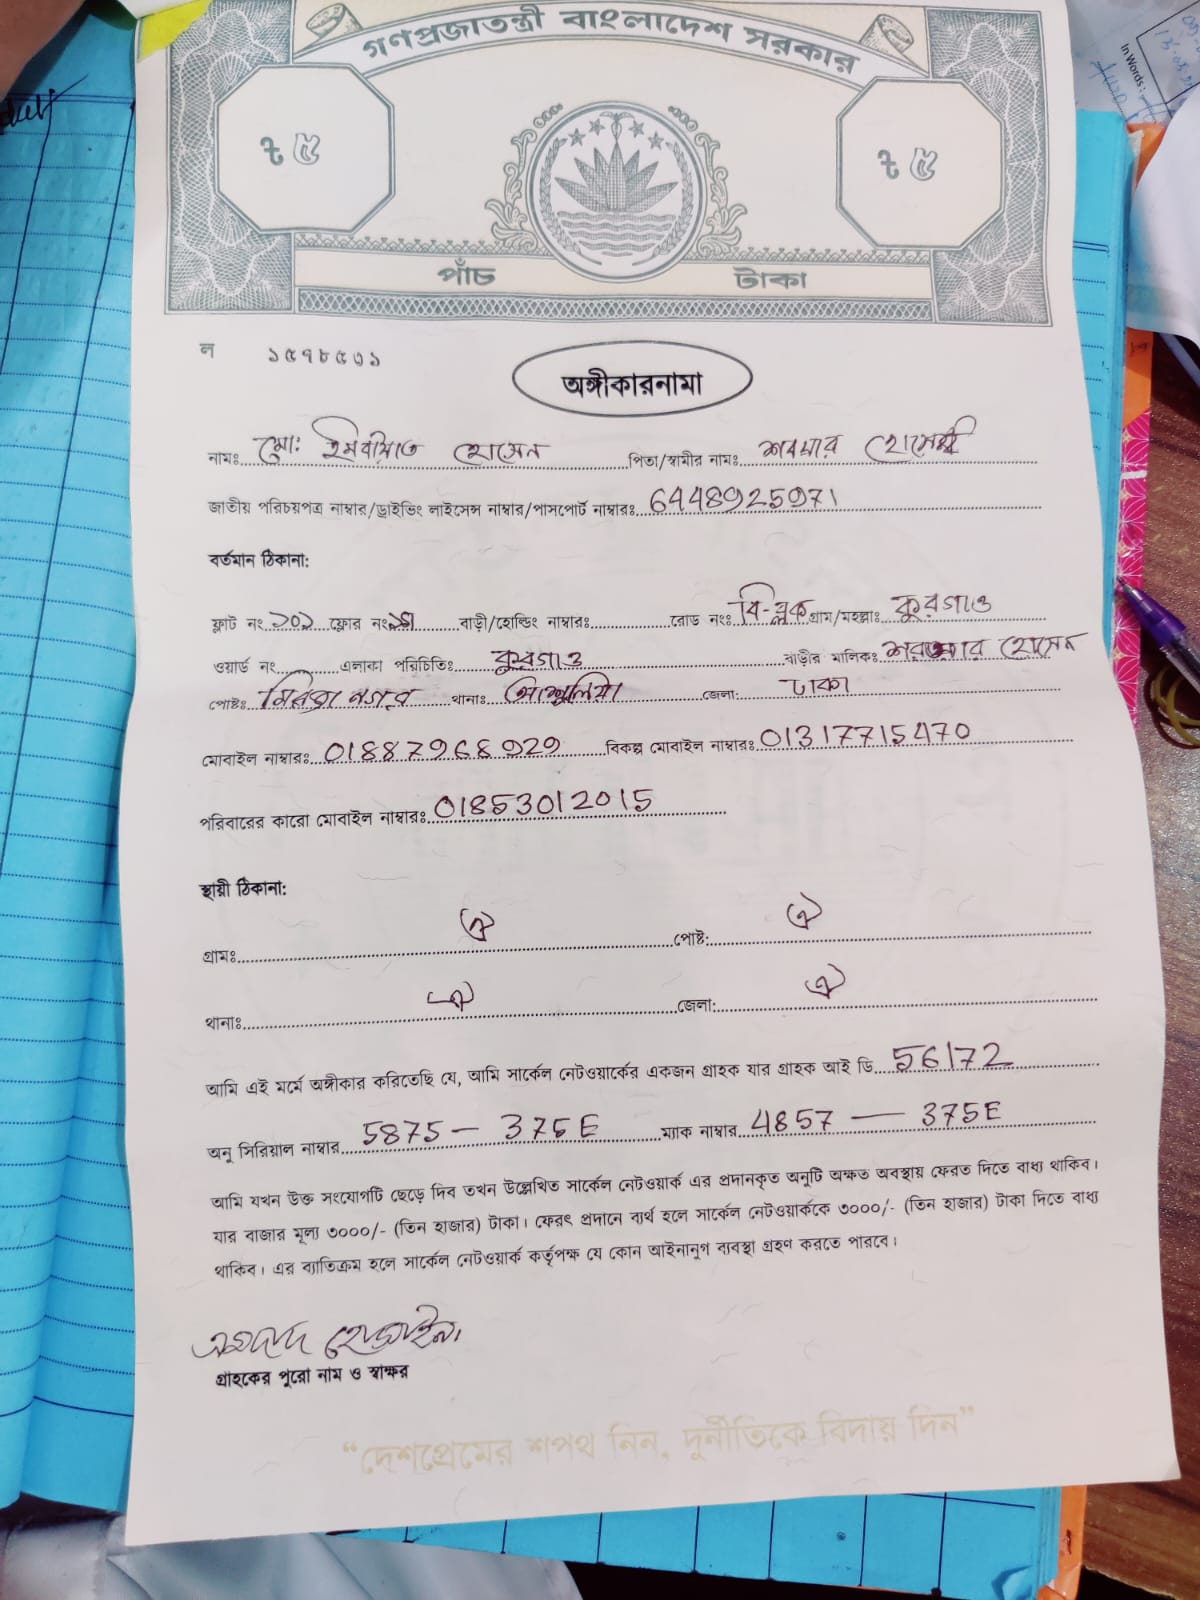 গণপ্রজাতন্ত্রী বাংলাদেশ সরকার
৳ ৫ ৳ ৫
পাঁচ টাকা
ল ১৫৭৮৫৩১
অঙ্গীকারনামা
নামঃ মোঃ হোসেন পিতা/স্বামীর নামঃ
জাতীয় পরিচয়পত্র নাম্বার/ড্রাইভিং লাইসেন্স নাম্বার/পাসপোর্ট নাম্বারঃ 6448925971
বর্তমান ঠিকানা:
ফ্লাট নং ২০১ ফ্লোর নং বাড়ী/হোল্ডিং নাম্বারঃ রোড নংঃ বি-ব্লক গ্রাম/মহল্লাঃ কুরগাও
ওয়ার্ড নং এলাকা পরিচিতিঃ কুরগাও বাড়ীর মালিকঃ হোসেন
পোষ্টঃ থানাঃ আশুলিয়া জেলা: ঢাকা
মোবাইল নাম্বারঃ 01887968929 বিকল্প মোবাইল নাম্বারঃ 01317715470
পরিবারের কারো মোবাইল নাম্বারঃ 01853012015
স্থায়ী ঠিকানা:
গ্রামঃ ঐ পোষ্ট: ঐ
থানাঃ ঐ জেলা: ঐ
আমি এই মর্মে অঙ্গীকার করিতেছি যে, আমি সার্কেল নেটওয়ার্কের একজন গ্রাহক যার গ্রাহক আই ডি 56172
অনু সিরিয়াল নাম্বার 5875 — 375E ম্যাক নাম্বার 4857 — 375E
আমি যখন উক্ত সংযোগটি ছেড়ে দিব তখন উল্লেখিত সার্কেল নেটওয়ার্ক এর প্রদানকৃত অনুটি অক্ষত অবস্থায় ফেরত দিতে বাধ্য থাকিব।
যার বাজার মূল্য ৩০০০/- (তিন হাজার) টাকা। ফেরৎ প্রদানে ব্যর্থ হলে সার্কেল নেটওয়ার্ককে ৩০০০/- (তিন হাজার) টাকা দিতে বাধ্য
থাকিব। এর ব্যাতিক্রম হলে সার্কেল নেটওয়ার্ক কর্তৃপক্ষ যে কোন আইনানুগ ব্যবস্থা গ্রহণ করতে পারবে।
গ্রাহকের পুরো নাম ও স্বাক্ষর
“দেশপ্রেমের শপথ নিন, দুর্নীতিকে বিদায় দিন”
In Words :